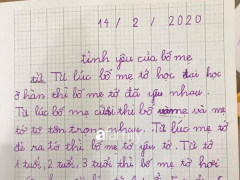 14 / 2 / 2020
tình yêu của bố mẹ
Từ lúc bố mẹ tớ học đại học
ở hàn thì bố mẹ tớ đã yêu nhau.
Từ lúc bố mẹ cưới thì bố và mẹ
tớ tớ tôn trọng nhau. Từ lúc mẹ tớ
đẻ ra tớ thì bố mẹ tớ yêu tớ. Từ tớ
1 tuổi, 2 tuổi 3 tuổi thì bố mẹ tớ